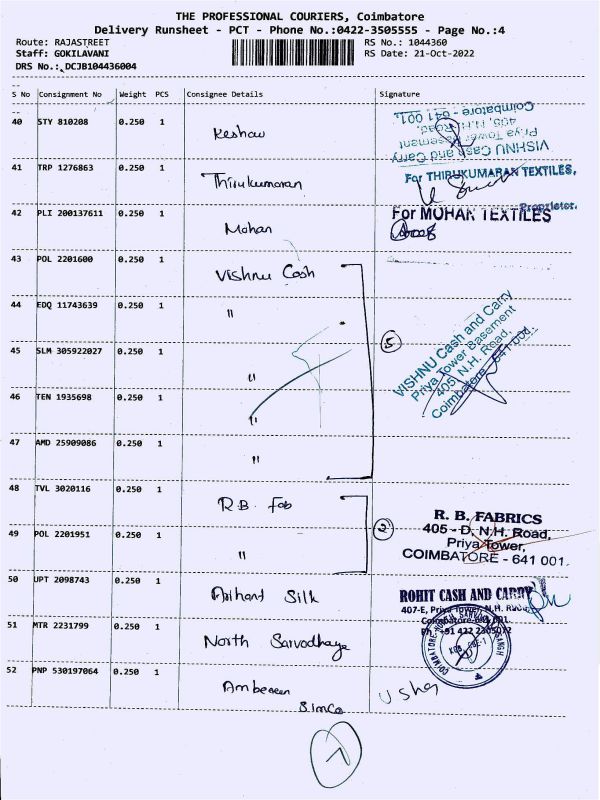 THE PROFESSIONAL COURIERS, Coimbatore
Delivery Runsheet - PCT - Phone No.:0422-3505555 - Page No.:4
Route: RAJASTREET
RS No.: 1044360
Staff: GOKILAVANI
RS Date: 21-Oct-2022
DRS No.: DCJB104436004
S No Consignment No Weight PCS Consignee Details Signature
40 STY 810208 0.250 1 Keshav
VISHNU Cash and Carry
Priya Tower Basement
405, N.H. Road,
Coimbatore - 641 001.
41 TRP 1276863 0.250 1 Thirukumaran
For THIRUKUMARAN TEXTILES,
Proprietor.
42 PLI 200137611 0.250 1 Mohan
For MOHAN TEXTILES
43 POL 2201600 0.250 1 Vishnu Cash
44 EDQ 11743639 0.250 1 "
45 SLM 305922027 0.250 1 "
46 TEN 1935698 0.250 1 "
47 AMD 25909086 0.250 1 "
5
VISHNU Cash and Carry
Priya Tower Basement
405, N.H. Road,
Coimbatore - 641 001.
48 TVL 3020116 0.250 1 R.B. Fab
49 POL 2201951 0.250 1 "
2
R. B. FABRICS
405 - D, N.H. Road,
Priya Tower,
COIMBATORE - 641 001.
50 UPT 2098743 0.250 1 Arihant Silk
ROHIT CASH AND CARRY
407-E, Priya Tower, N.H. Road
Coimbatore-641 001.
51 MTR 2231799 0.250 1 North Sarvodhaya
52 PNP 530197064 0.250 1
Simco
Usha
7